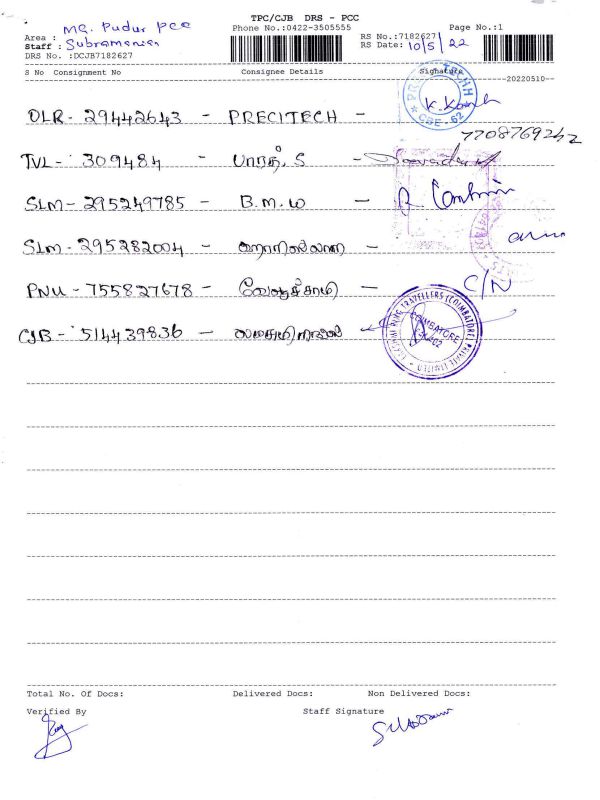 TPC/CJB DRS - PCC
Area : MG. Pudur PCC
Phone No.:0422-3505555
Page No.:1
Staff : Subramanian
RS No.:7182627
RS Date: 10/5/22
DRS No. :DCJB7182627
S No Consignment No Consignee Details Signature
20220510
DLR - 29442643 - PRECITECH -
K. Kan
7708769242
TVL - 309484 - பாரத். S -
SLM - 295249785 - B.M.W -
SLM - 295282004 - -
PNU - 755827678 - வேலுச்சாமி - C/N
CJB - 514439836 -
CBE - 62
TRAVELLERS (COIMBATORE) PRIVATE LIMITED
COIMBATORE
Total No. Of Docs: Delivered Docs: Non Delivered Docs:
Verified By Staff Signature